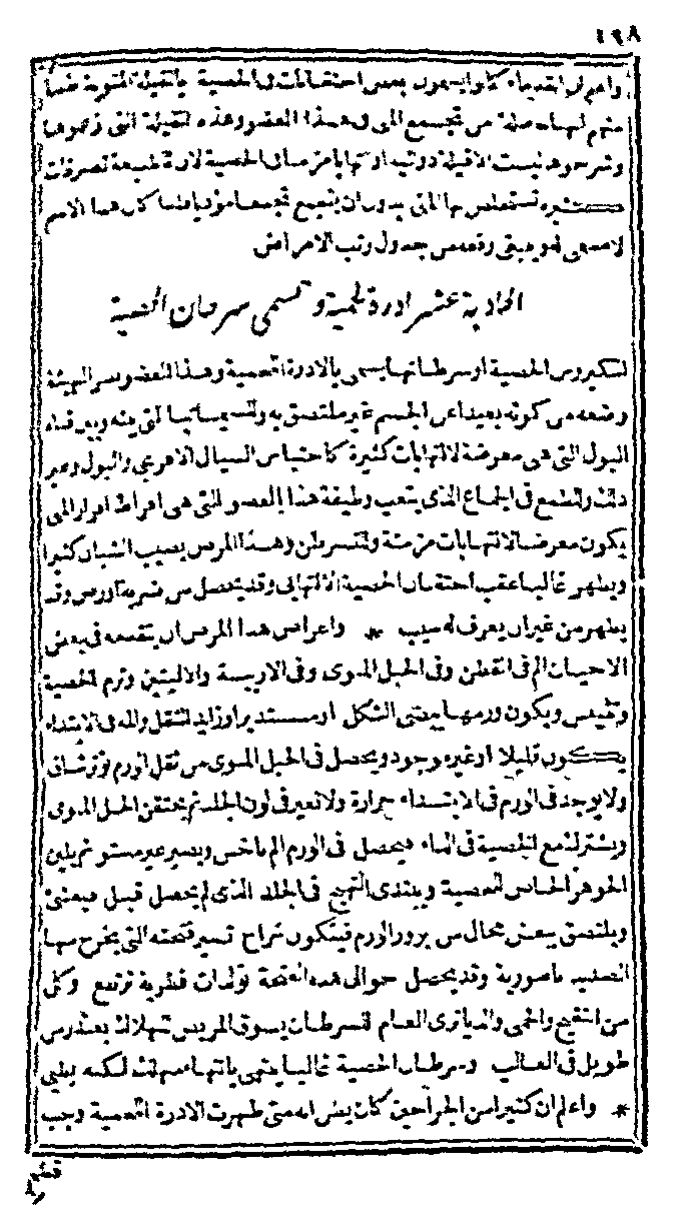 ١٩٨
واعلم ان القدماء كانوا يسمون بعض احتقانات الخصية بالقيلة المنوية ظنا
منهم انها حاصلة من تجمع المنى فى هذا العضو وهذه القيلة التى زعموها
وشرحوها ليست الا قيلة دوالية او التهابا مزمنا فى الخصية لان طبيعة تصرفات
لا معنى له وينبغى رفعه من جدول رتب الامراض
الحادية عشر ادرة لحمية وتسمى سرطان الخصية
اسكيروس الخصية او سرطانها يسمى بالادرة اللحمية وهذا العضو بسبب الهيئة
وضعه من كونه بعيدا عن الجسم غير ملتصق به والسمباتيا التى بينه وبين قناة
البول التى هى معرضة لالتهابات كثيرة كاحتباس السيال الافرنجى والبول وغير
ذلك والطمع فى الجماع الذى يتعب وظيفة هذا العضو التى هى افراط افراز المنى
يكون معرضا لالتهابات مزمنة والتسرطن وهذا المرض يصيب الشبان كثيرا
ويظهر غالبا عقب احتقان الخصية الالتهابى وقد يحصل من ضربة او رض وقد
يظهر من غير ان يعرف له سبب * واعراض هذا المرض ان يتقدمه فى بعض
الاحيان الم فى القطن وفى الحبل المنوى وفى الاربية والاليتين وترم الخصية
وتيبس ويكون ورمها بيضى الشكل او مستديرا وزايد الثقل والمه فى الابتداء
يكون قليلا او غير موجود ويحصل فى الحبل المنوى من ثقل الورم توتر شاق
ولا يوجد فى الورم فى الابتداء حرارة ولا تغير فى لون الجلد ثم يحتقن الحبل المنوى
ويشترك مع الخصية فى الداء فيحصل فى الورم الم ناخس ويصير غير مستو ثم يلين
الجوهر الخاص للخصية ويبتدى التهيج فى الجلد الذى لم يحصل قبل فيعفن
ويلتصق ببعض محال من بروز الورم فيتكون خراج تصير فتحته التى يخرج منها
الصديد ناصورية وقد يحصل حوالى هذه الفتحة تولدات فطرية ترتفع وكل
من التقيح والحمى والدياتزى العام للسرطان يسوق المريض للهلاك بعد زمن
طويل فى الغالب وسرطان الخصية غالبا ينتهى بانتهاء مهلك لكنه بطيئ
* واعلم ان كثيرا من الجراحين كان يظن انه متى ظهرت الادرة اللحمية وجب
قطع